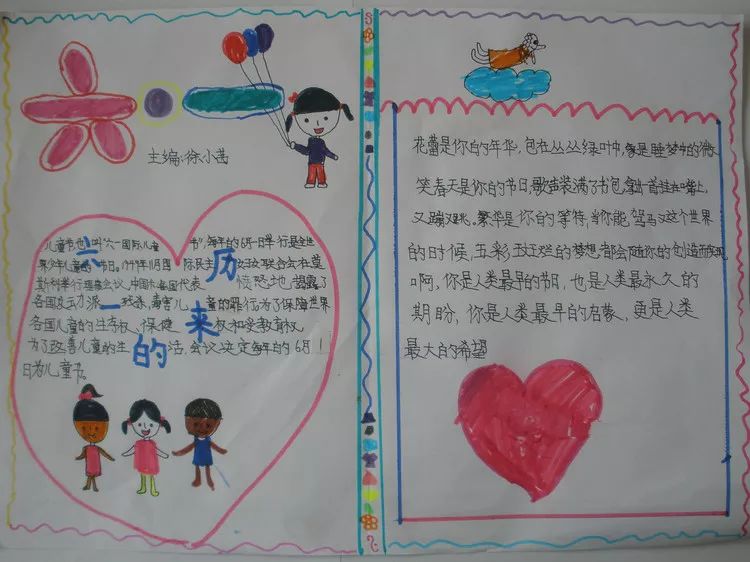 六·一
主编:徐小茜
六一的历来
儿童节也叫"六一国际儿童节",每年的6月1日举行是全世
界少年儿童的节日。1949年11月国际民主妇女联合会在莫
斯科举行理事会议,中国和各国代表愤怒地揭露了
各国反动派残杀、毒害儿童的罪行。为了保障世界
各国儿童的生存权、保健权和受教育权
为了改善儿童的生活,会议决定每年的6月1
日为儿童节。
花蕾是你的年华,包在丛丛绿叶中,象是睡梦中的微
笑春天是你的节日,歌声装满了书包,拿出一首挂在嘴上,
又蹦又跳。繁华是你的等待,当你能驾驭这个世界
的时候,五彩斑斓的梦想都会随你的创造而实现
啊,你是人类最早的节日,也是人类最永久的
期盼,你是人类最早的启蒙,更是人类
最大的希望